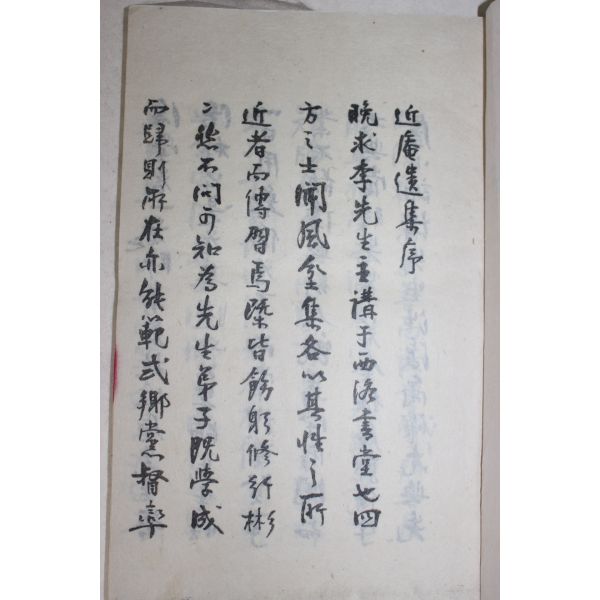 近庵遺集序
晩求李先生主講于西洛書堂也四
方之士聞風坌集各以其性之所
近者而傳習焉槩皆飭躬修行彬
〻然不問可知爲先生弟子旣學成
而歸則所在亦能以範式鄕黨督率